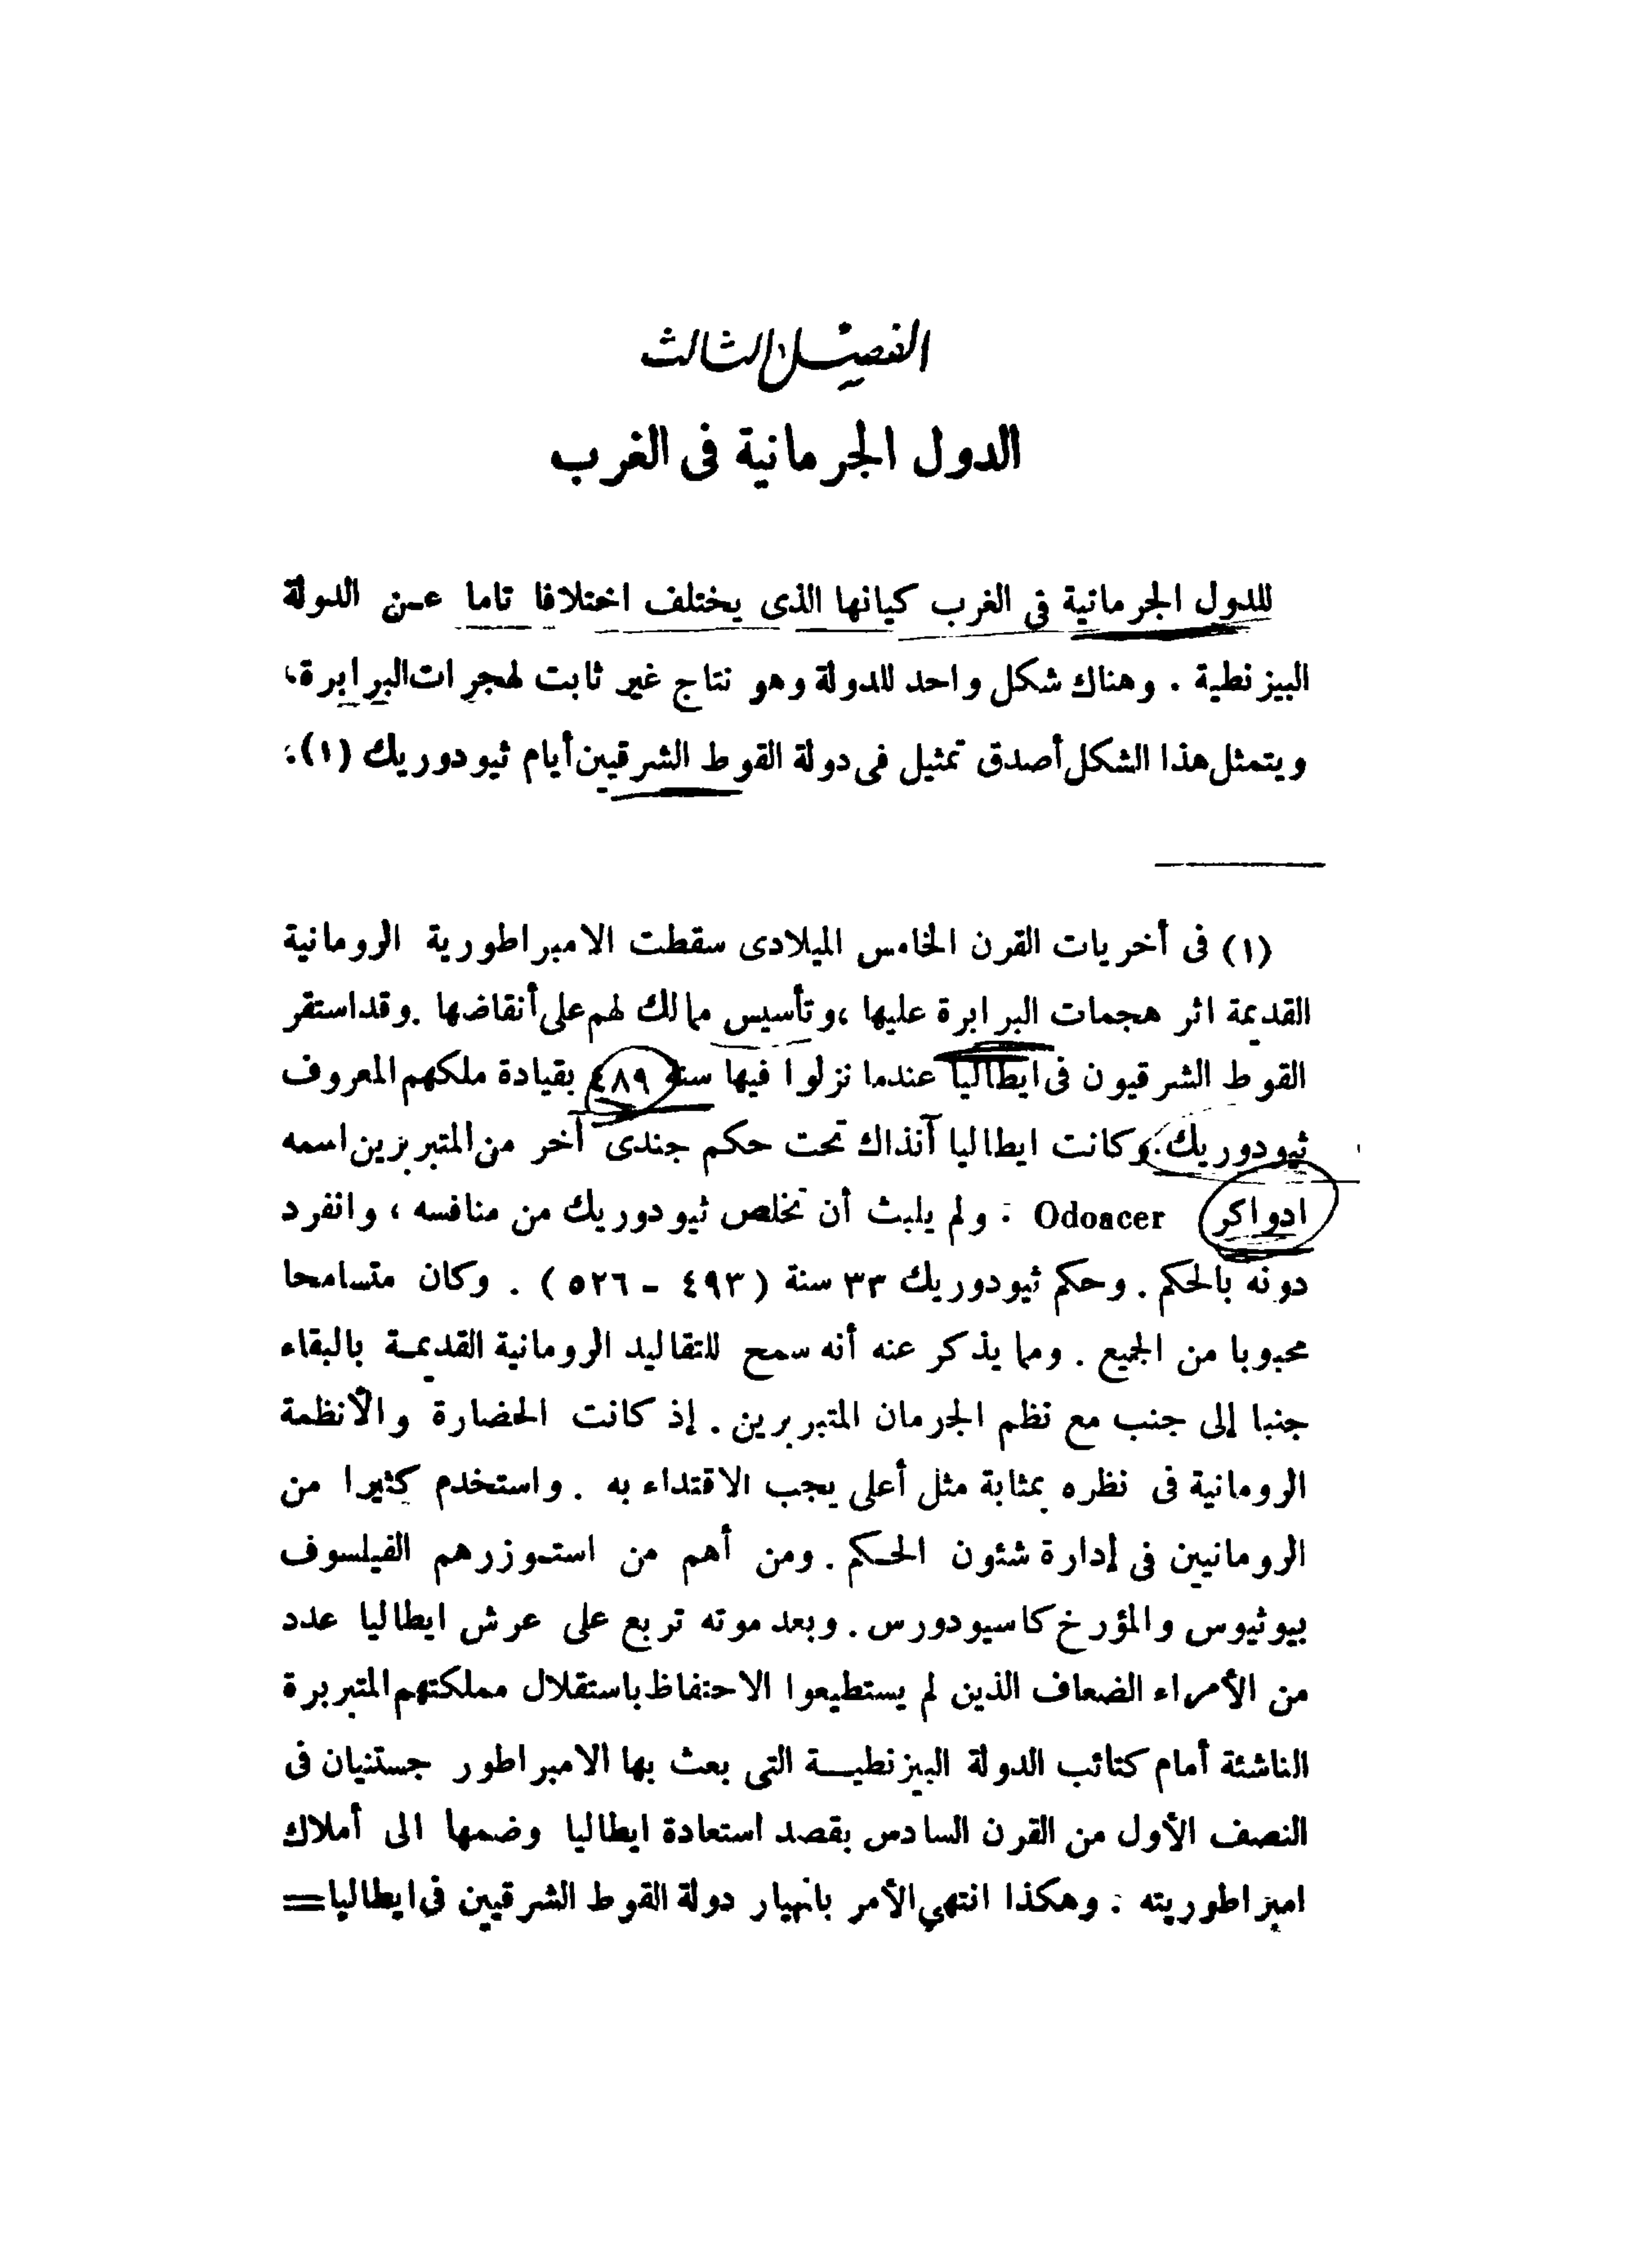 الفصل الثالث
الدول الجرمانية فى الغرب
للدول الجرمانية فى الغرب كيانها الذى يختلف اختلافا تاما عن الدولة
البيزنطية . وهناك شكل واحد للدولة وهو نتاج غير ثابت لهجرات البرابرة،
ويتمثل هذا الشكل أصدق تمثيل فى دولة القوط الشرقيين أيام ثيودوريك (١).
(١) فى أخريات القرن الخامس الميلادى سقطت الامبراطورية الرومانية
القديمة اثر هجمات البرابرة عليها ، وتأسيس ممالك لهم على أنقاضها . وقد استقر
القوط الشرقيون فى ايطاليا عندما نزلوا فيها سنة ٤٨٩ بقيادة ملكهم المعروف
ثيودوريك . وكانت ايطاليا آنذاك تحت حكم جندى آخر من المتبربرين اسمه
ادواكر Odoacer . ولم يلبث أن تخلص ثيودوريك من منافسه ، وانفرد
دونه بالحكم . وحكم ثيودوريك ٣٣ سنة ( ٤٩٣ - ٥٢٦ ) . وكان متسامحا
محبوبا من الجميع . ومما يذكر عنه أنه سمح للتقاليد الرومانية القديمة بالبقاء
جنبا إلى جنب مع نظم الجرمان المتبربرين . إذ كانت الحضارة والأنظمة
الرومانية فى نظره بمثابة مثل أعلى يجب الاقتداء به . واستخدم كثيرا من
الرومانيين فى إدارة شئون الحكم . ومن أهم من استوزرهم الفيلسوف
بيوثيوس والمؤرخ كاسيودورس . وبعد موته تربع على عرش ايطاليا عدد
من الأمراء الضعاف الذين لم يستطيعوا الاحتفاظ باستقلال مملكتهم المتبربرة
الناشئة أمام كتائب الدولة البيزنطية التى بعث بها الامبراطور جستنيان فى
النصف الأول من القرن السادس بقصد استعادة ايطاليا وضمها الى أملاك
امبراطوريته . وهكذا انتهى الأمر بانهيار دولة القوط الشرقيين فى ايطاليا =